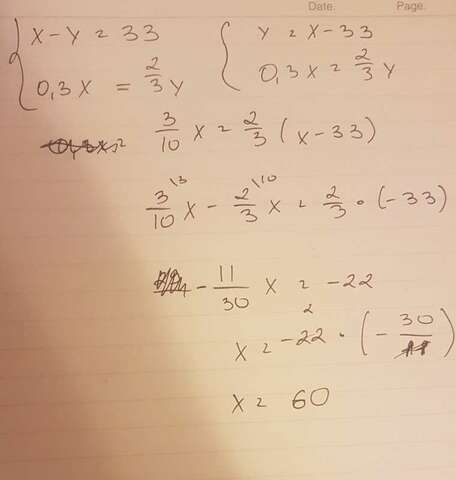 Date. Page.
x - y = 33    y = x - 33
0,3x = 2/3 y    0,3x = 2/3 y
3/10 x = 2/3 (x - 33)
3\3/10 x - 2\10/3 x = 2/3 • (-33)
- 11/30 x = -22
x = -22 2 • (- 30/11)
x = 60